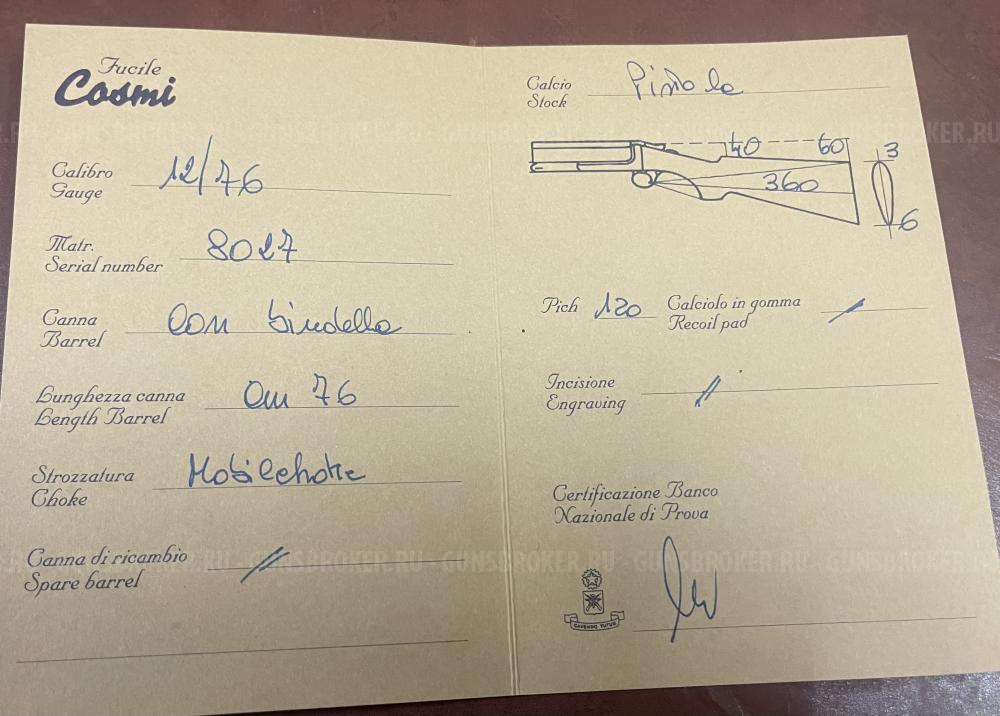 Fucile
Cosmi
Calibro 12/76
Gauge
Matr. 8027
Serial number
Canna Con bindella
Barrel
Lunghezza canna cm 76
Length Barrel
Strozzatura Mobilchoke
Choke
Canna di ricambio //
Spare barrel
Calcio Pistola
Stock
40 60 3
360
6
Pich 120 Calciolo in gomma /
Recoil pad
Incisione //
Engraving
Certificazione Banco
Nazionale di Prova
GUNSBROKER.RU - GUNSBROKER.RU - GUNSBROKER.RU
GUNSBROKER.RU - GUNSBROKER.RU - GUNSBROKER.RU